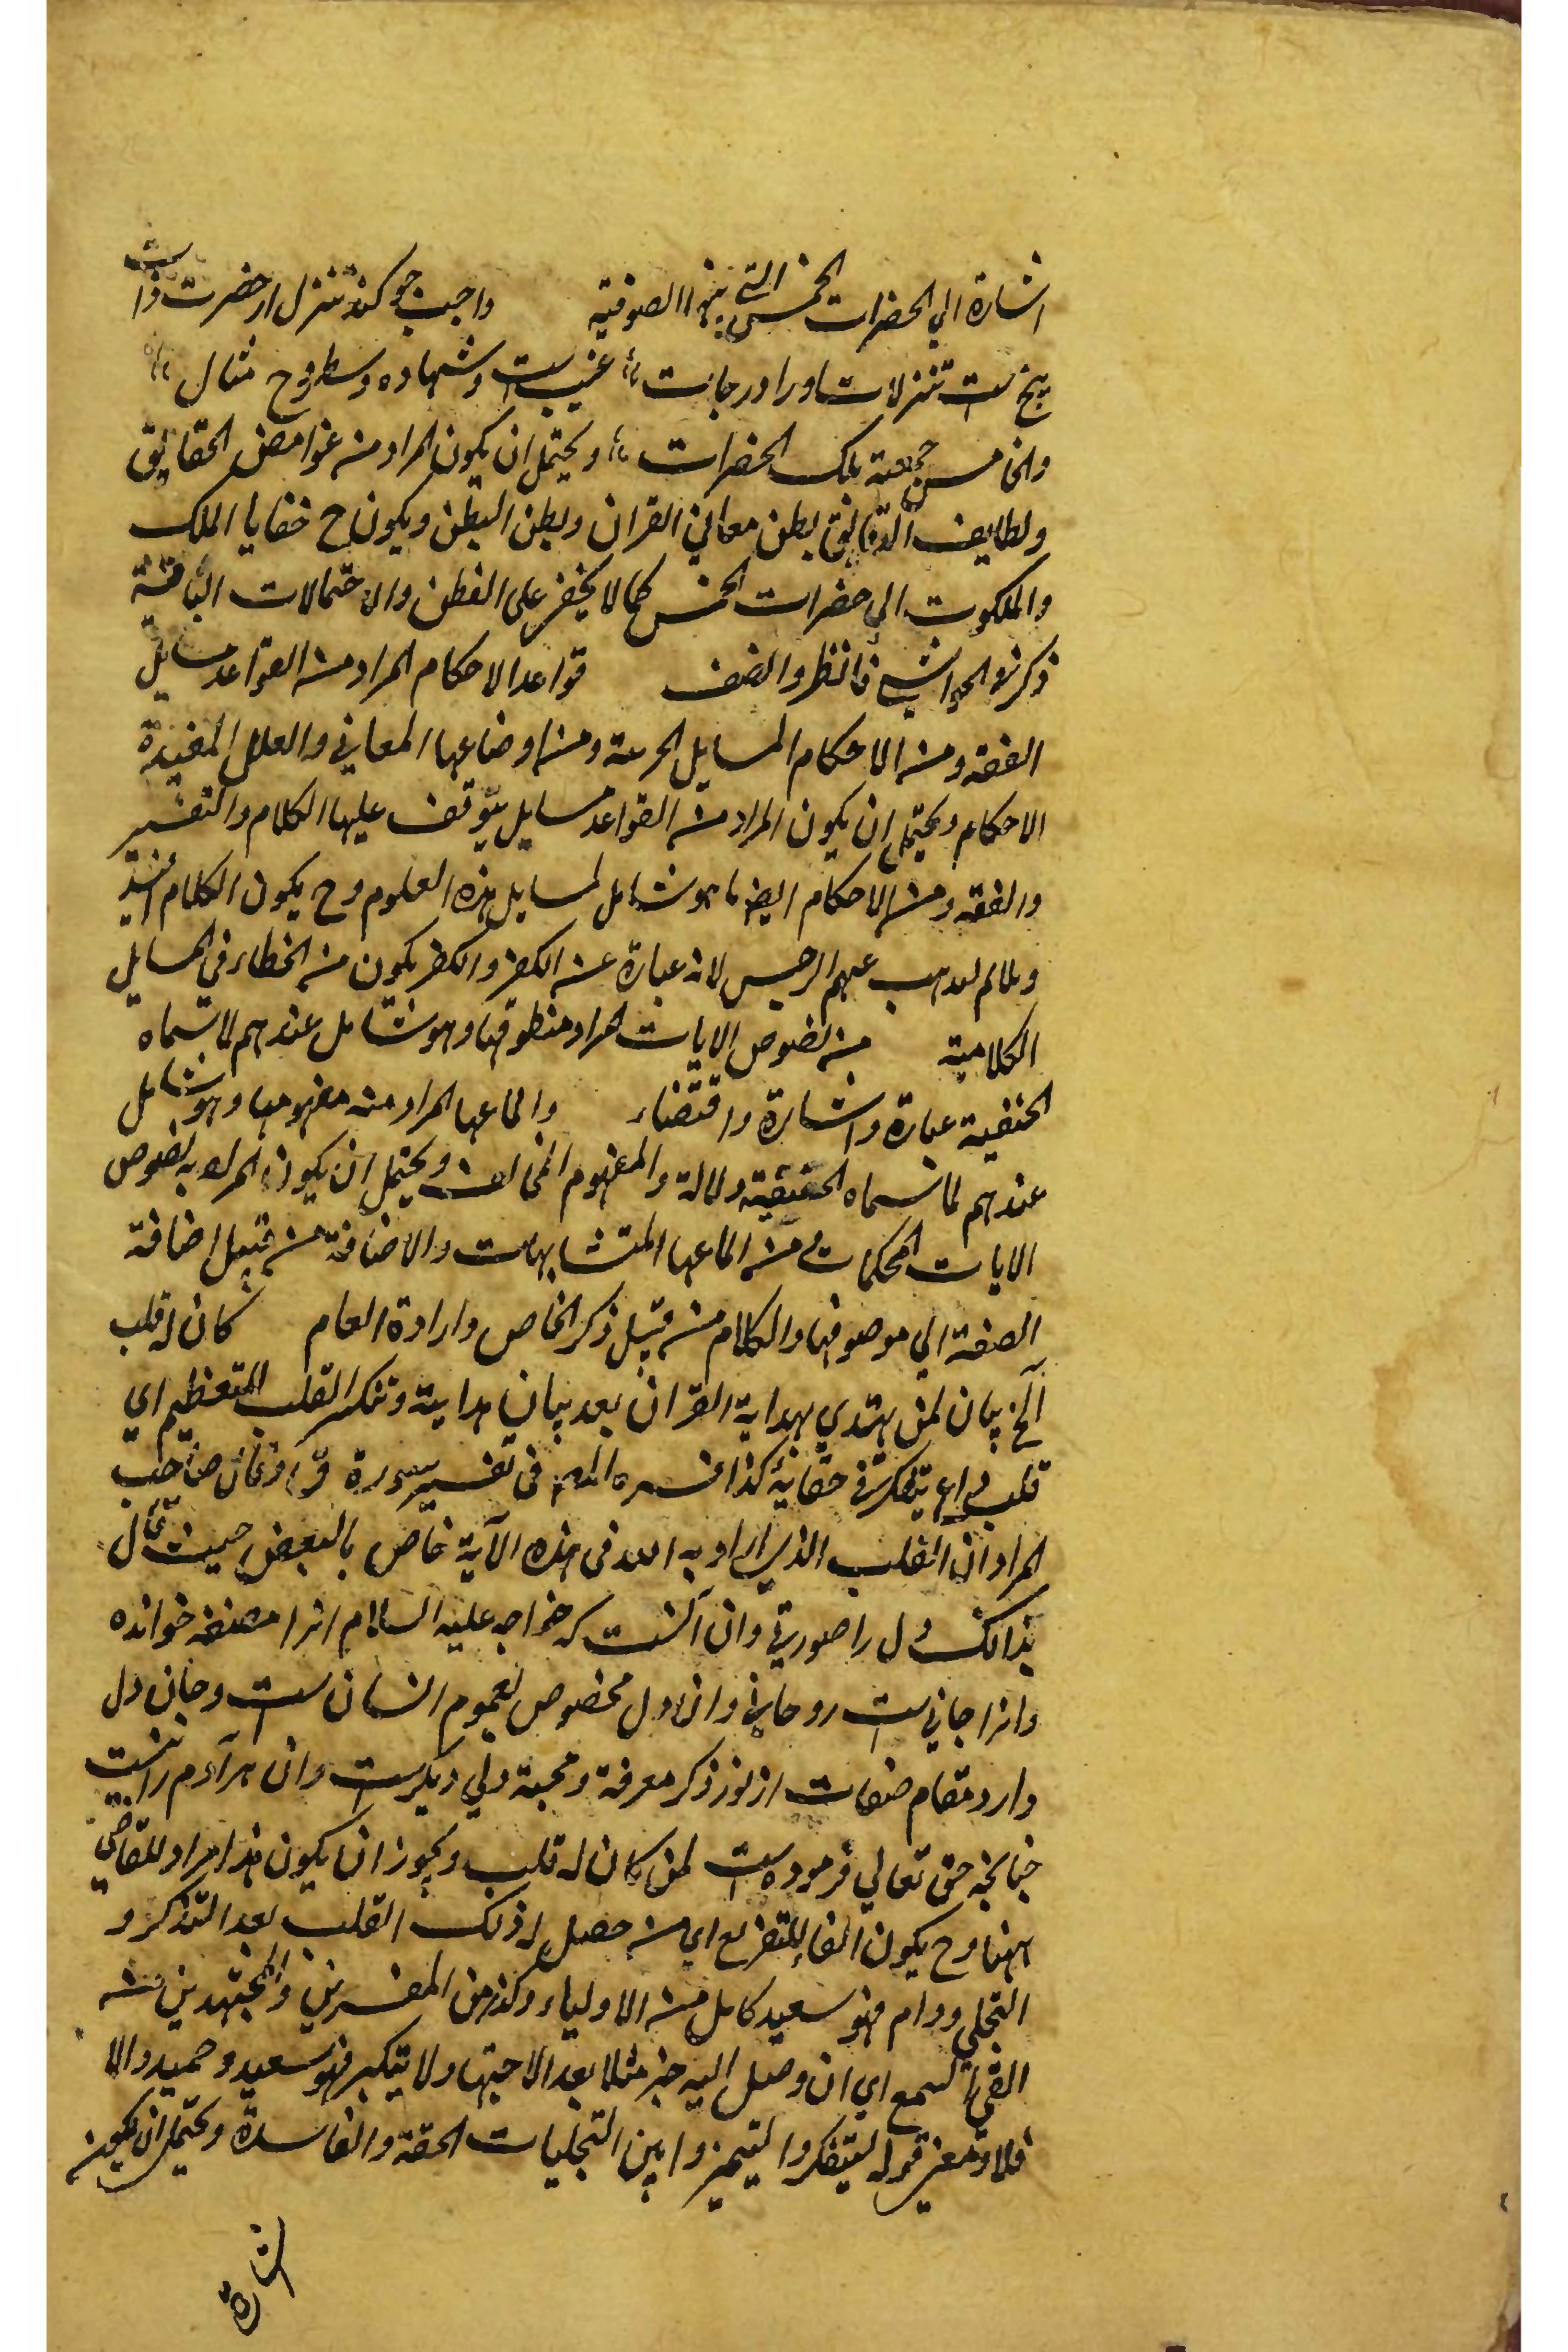 اشارة الي الحضرات الخمس التي بينها الصوفية واجب چو كند تنزل از حضرت ذات
پنج است تنزلات او را درجات غيب است وشهاده وسط روح مثال
والخامس جمعية تلك الحضرات ويحتمل ان يكون المراد من غوامض الحقايق
ولطايف الدقايق بطن معاني القران وبطن البطن ويكون ح خفايا الملك
والملكوت الي حضرات الخمس كما لا يخفي على الفطن والاحتمالات الباقية
ذكرته الحواشي فانظر وانصف قواعد الاحكام المراد من القواعد مسايل
الفقه ومن الاحكام المسايل الجزئية ومن اوضاعها المعاني والعلل المفيدة
الاحكام ويحتمل ان يكون المراد من القواعد مسايل يتوقف عليها الكلام والتفسير
والفقه ومن الاحكام ايضا ما هو شامل لمسايل هذه العلوم وح يكون الكلام
ولما لم يذهب عنهم الرجس لانه عبارة عن الكفر والكفر يكون من الخطاء في المسايل
الكلامية من نصوص الايات المراد منطوقها وهو شامل عندهم لما سماه
الحنفية عبارة واشارة واقتضاء والماعها المراد منه مفهومها وهو شامل
عندهم لما سماه الحنفية دلالة والمفهوم المخالف ويحتمل ان يكون المراد بنصوص
الايات المحكمات ومن الماعها المتشابهات والاضافة من قبيل اضافة
الصفة الي موصوفها والكلام من قبيل ذكر الخاص وارادة العام كان له قلب
آلخ بيان لمن يهتدي بهداية القران بعد بيان هداية وتنكير القلب للتعظيم اي
قلب واع يتفكر في حقائقه كذا فسره المص في تفسير سورة ق وقال صاحب
المراد ان القلب الذي اراد به الله في هذه الآية خاص بالبعض حيث قال
بدانك دل را صورتي وان آنست كه خواجه عليه السلام انرا مضغه خوانده
وانرا جاني است روحاني وان دل مخصوص لعموم انسان است وجان دل
دارد مقام صفات از نور ذكر معرفة ومحبة دلي ديكرست وان هر آدم را نيست
چنانچه حق تعالي فرموده است لمن كان له قلب ويجوز ان يكون هذا مراد للقاضي
ههنا وح يكون الفاء للتفريع اي من حصل له ذلك القلب بعد التذكر و
التجلي ودام فهو سعيد كامل من الاولياء وكذا من المفسرين والمجتهدين من
القي السمع اي ان وصل اليه خبر مثلا بعد الاجتهاد ولا يتكبر فهو سعيد وحميد والا
فلا ومعني قوله ليتفكروا ليتميزوا بين التجليات الحقة والفاسدة ويحتمل ان يكون
اشارة